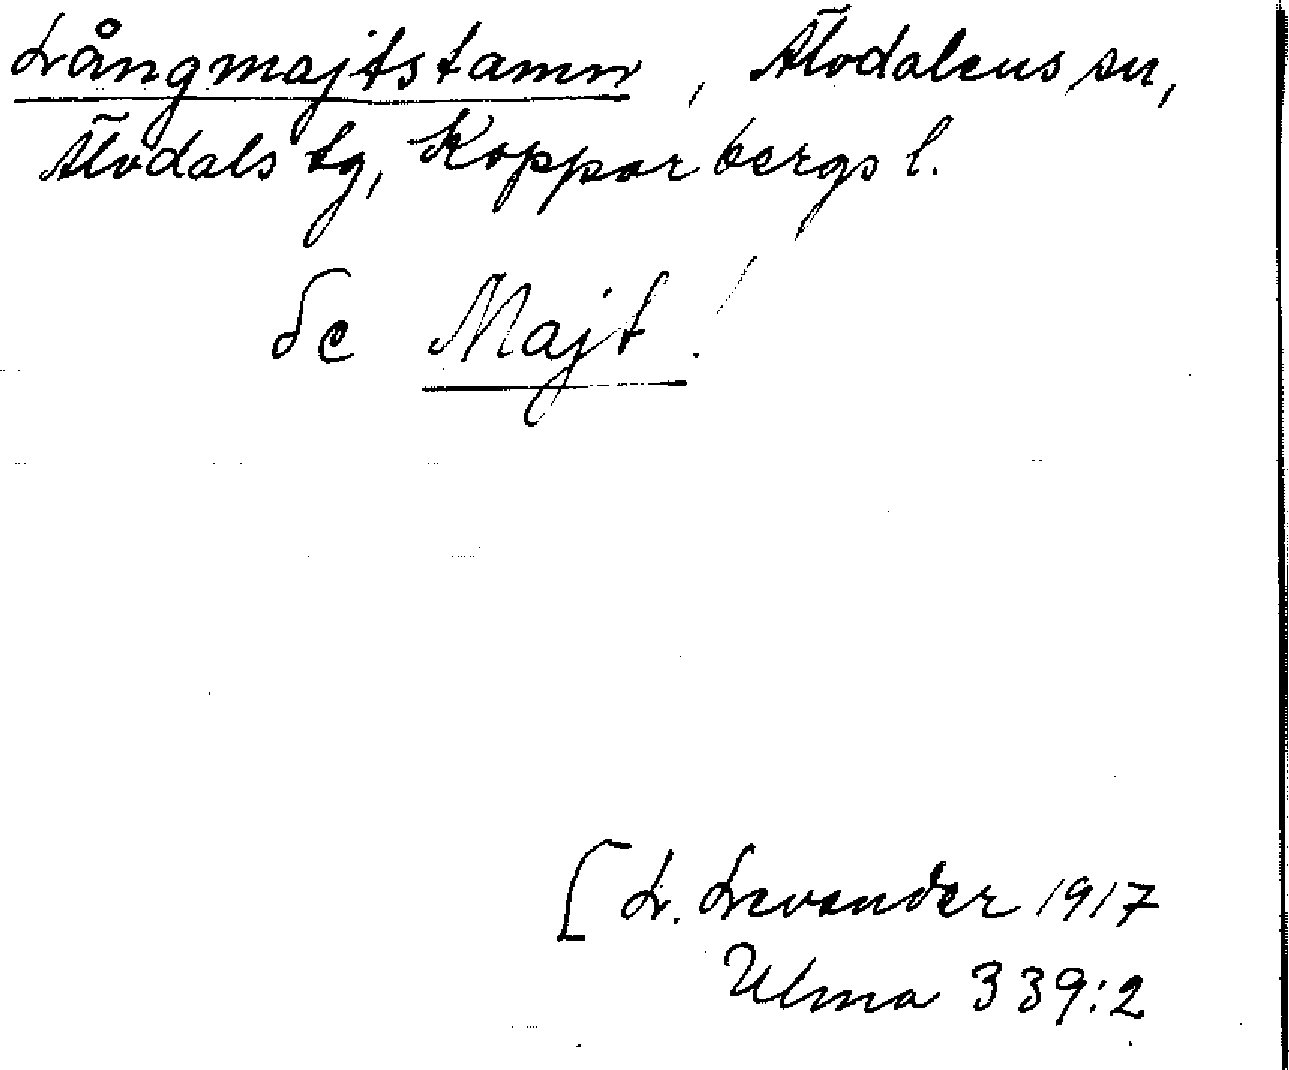 Långmajtstamn, Älvdalens sn,
Älvdals tg, Kopparbergs l.
Se Majt!
[L. Levander 1917
Ulma 339:2